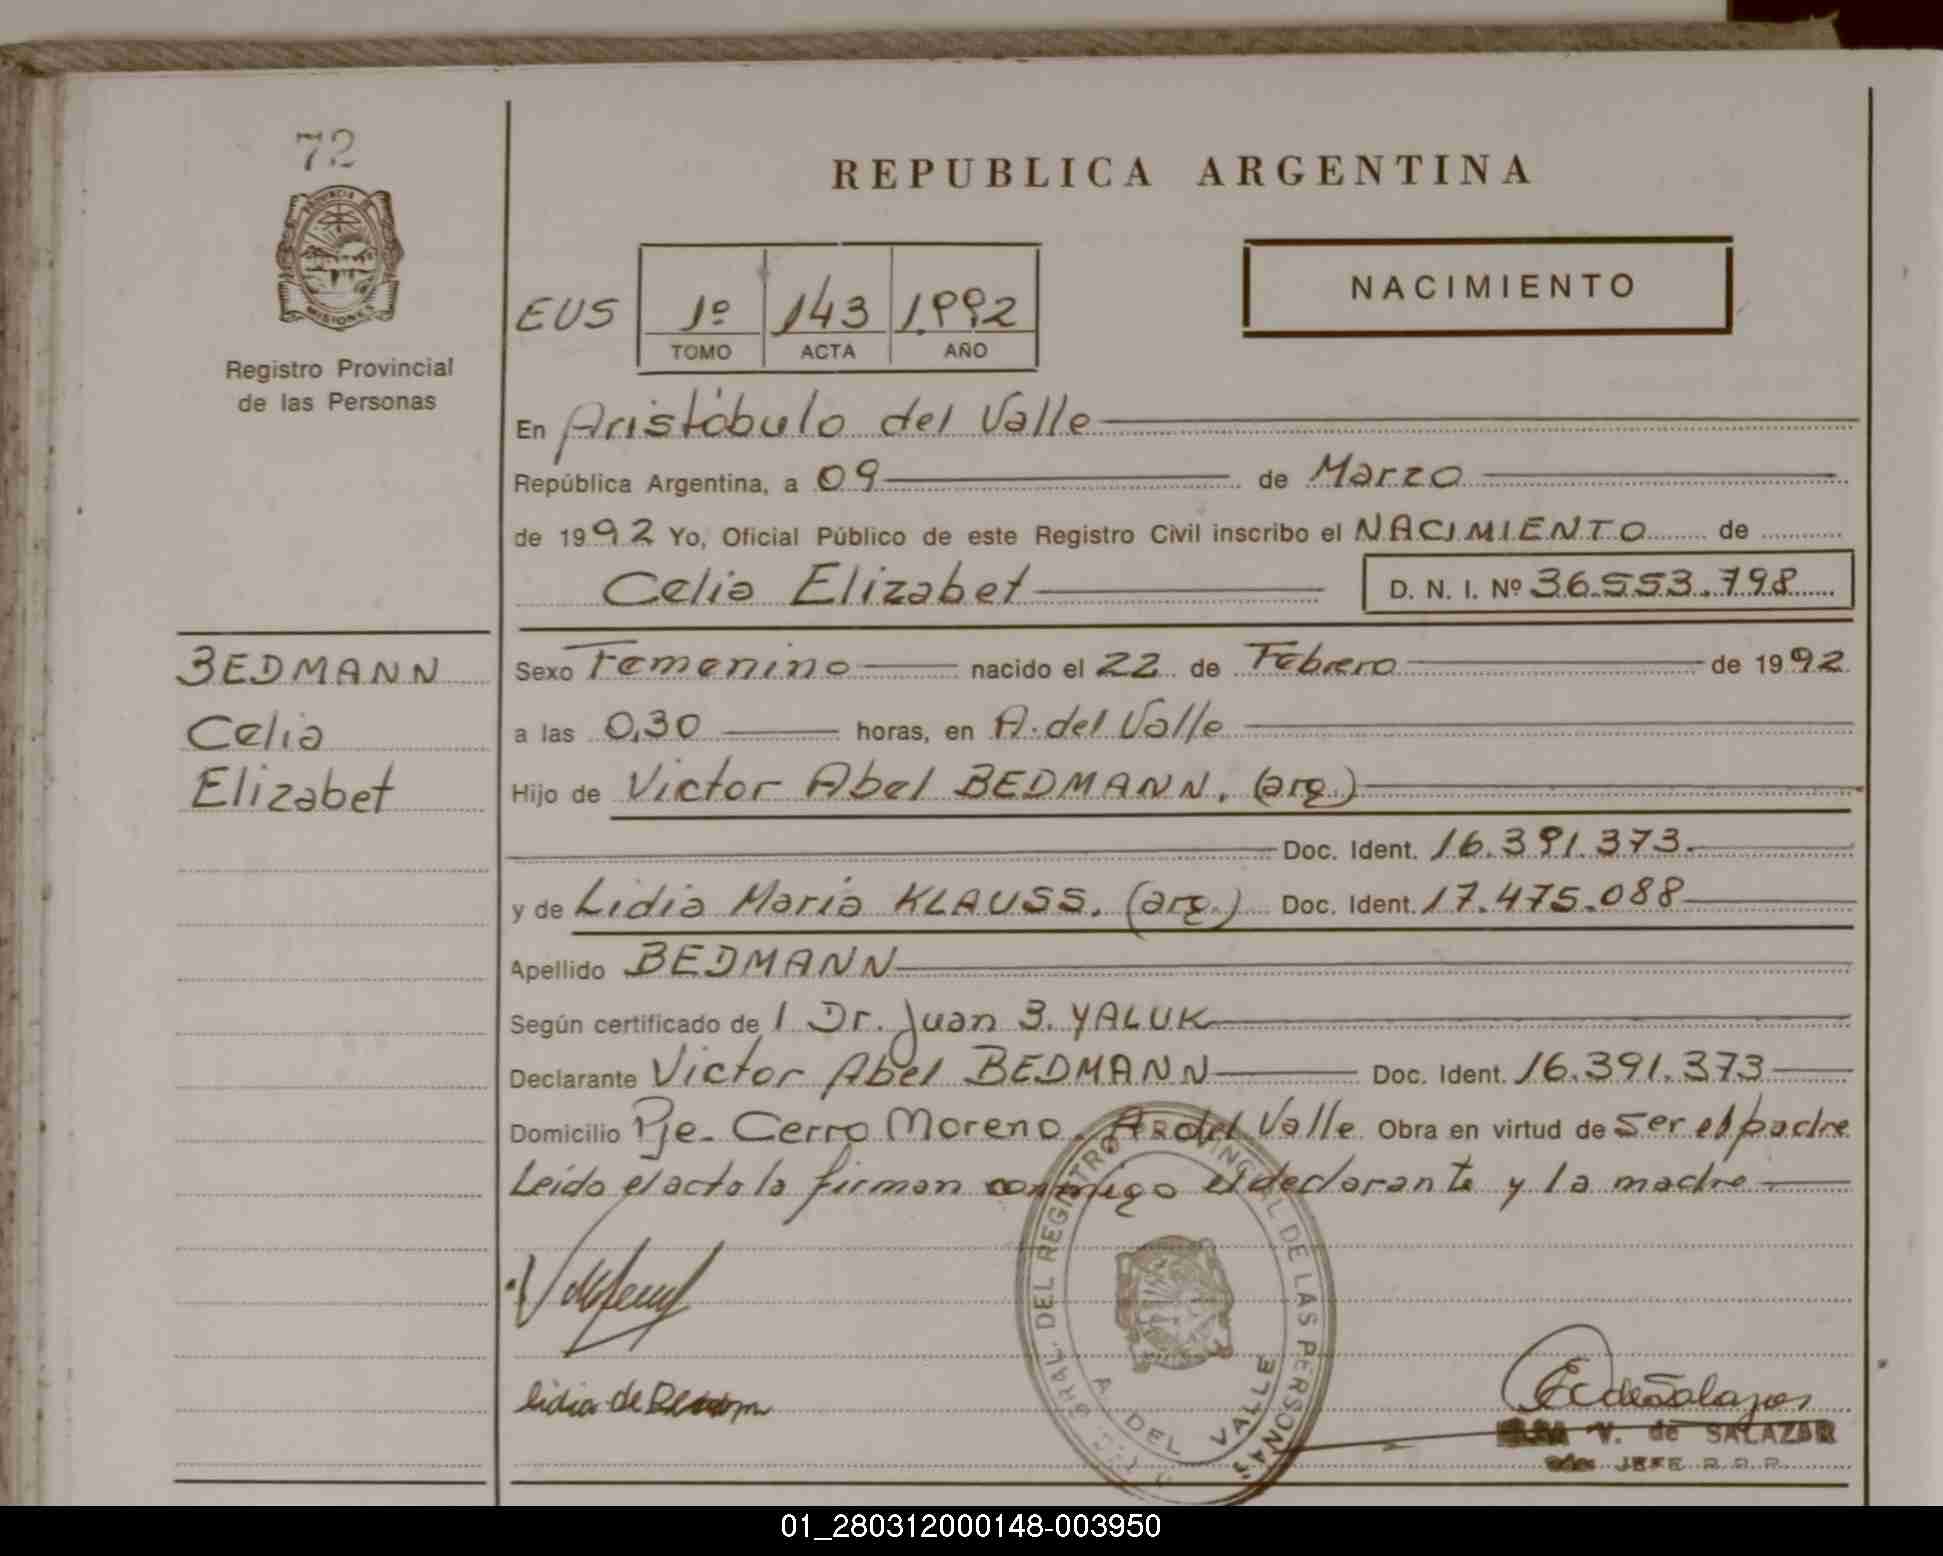 72
PROVINCIA DE
MISIONES
Registro Provincial
de las Personas
REPUBLICA ARGENTINA
EUS 1º 143 1.992
TOMO ACTA AÑO
NACIMIENTO
En Aristóbulo del Valle
República Argentina, a 09 de Marzo
de 1992 Yo, Oficial Público de este Registro Civil inscribo el NACIMIENTO de
Celia Elizabet D. N. I. Nº 36.553.798
BEDMANN
Celia
Elizabet
Sexo Femenino nacido el 22 de Febrero de 1992
a las 0,30 horas, en A. del Valle
Hijo de Victor Abel BEDMANN. (arg.)
Doc. Ident. 16.391.373.
y de Lidia Maria KLAUSS. (arg.) Doc. Ident. 17.475.088
Apellido BEDMANN
Según certificado de l Dr. Juan B. YALUK
Declarante Victor Abel BEDMANN Doc. Ident. 16.391.373
Domicilio Pje. Cerro Moreno. A. del Valle Obra en virtud de ser el padre
Leído el acto la firman conmigo el declarante y la madre
GRAL. DEL REGISTRO PROVINCIAL DE LAS PERSONAS
A. DEL VALLE
lidia de
E de Salazar
V. de SALAZAR
JEFE R.P.P.
01_280312000148-003950